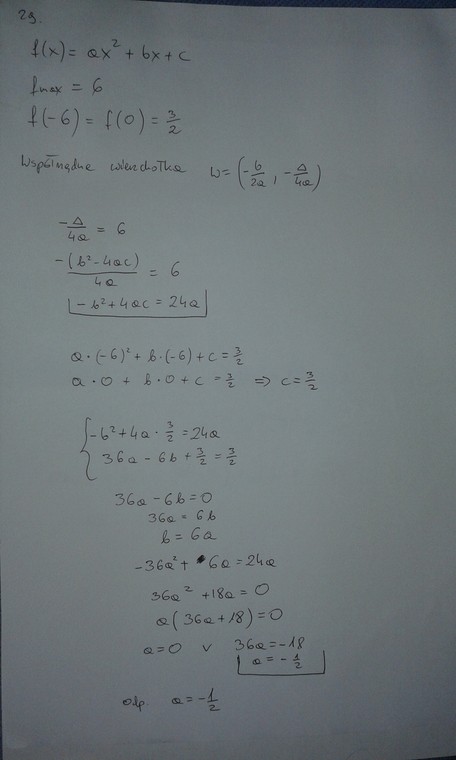 29.
f(x) = ax² + bx + c
fmax = 6
f(-6) = f(0) = 3/2
Współrzędne wierzchołka W = (-b/2a, -Δ/4a)
-Δ/4a = 6
-(b²-4ac)/4a = 6
-b²+4ac = 24a
a·(-6)² + b·(-6) + c = 3/2
a·0 + b·0 + c = 3/2 ⇒ c = 3/2
-b²+4a·3/2 = 24a
36a - 6b + 3/2 = 3/2
36a - 6b = 0
36a = 6b
b = 6a
-36a² + 6a = 24a
36a² + 18a = 0
a(36a+18) = 0
a = 0 ∨ 36a = -18
a = -1/2
Odp. a = -1/2